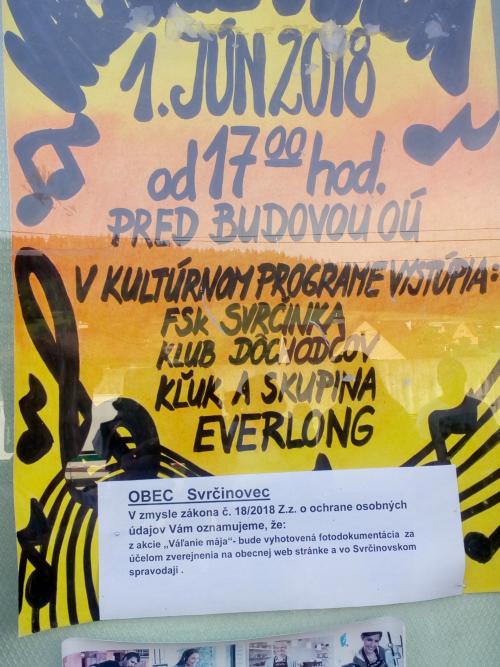 1. JÚN 2018
od 17 00 hod.
PRED BUDOVOU OÚ
V KULTÚRNOM PROGRAME VYSTÚPIA:
FSK SVRČINKA
KLUB DÔCHODCOV
KĽUK A SKUPINA
EVERLONG
OBEC Svrčinovec
V zmysle zákona č. 18/2018 Z.z. o ochrane osobných
údajov Vám oznamujeme, že:
z akcie „Váľanie mája“- bude vyhotovená fotodokumentácia za
účelom zverejnenia na obecnej web stránke a vo Svrčinovskom
spravodaji .